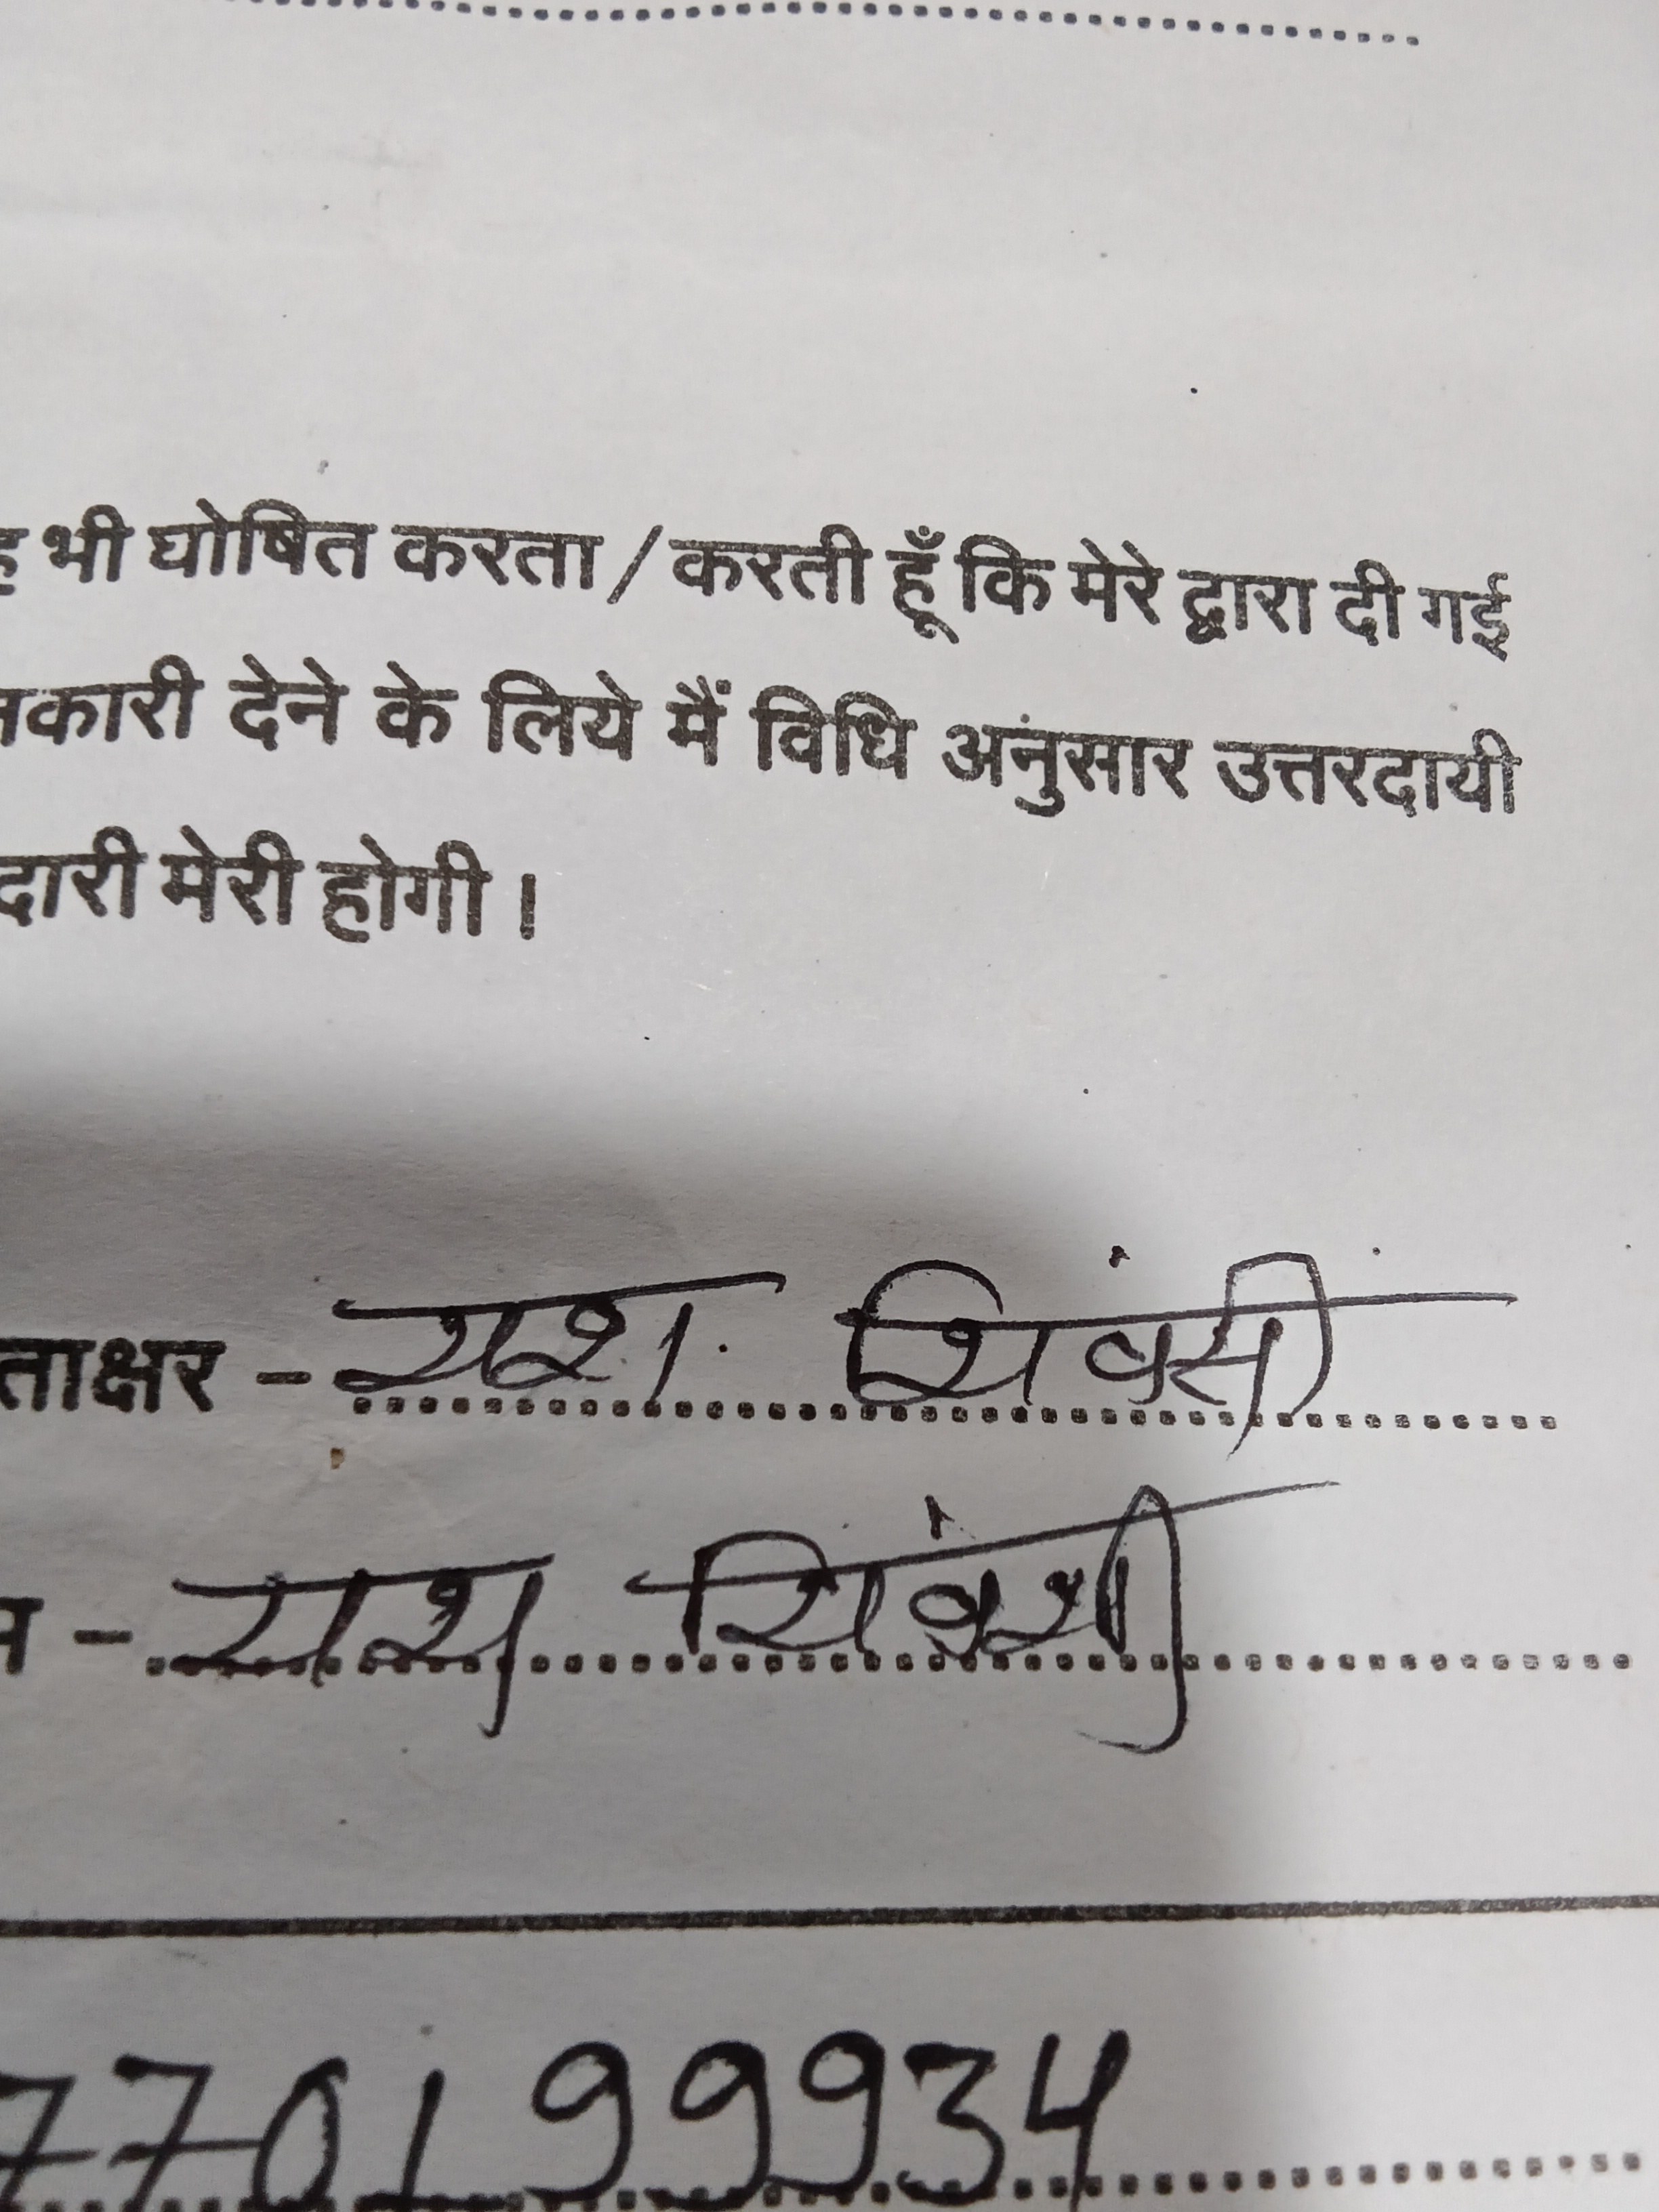 ह भी घोषित करता / करती हूँ कि मेरे द्वारा दी गई
नकारी देने के लिये मैं विधि अनुसार उत्तरदायी
दारी मेरी होगी।
ताक्षर - यश
म - यश
770199934